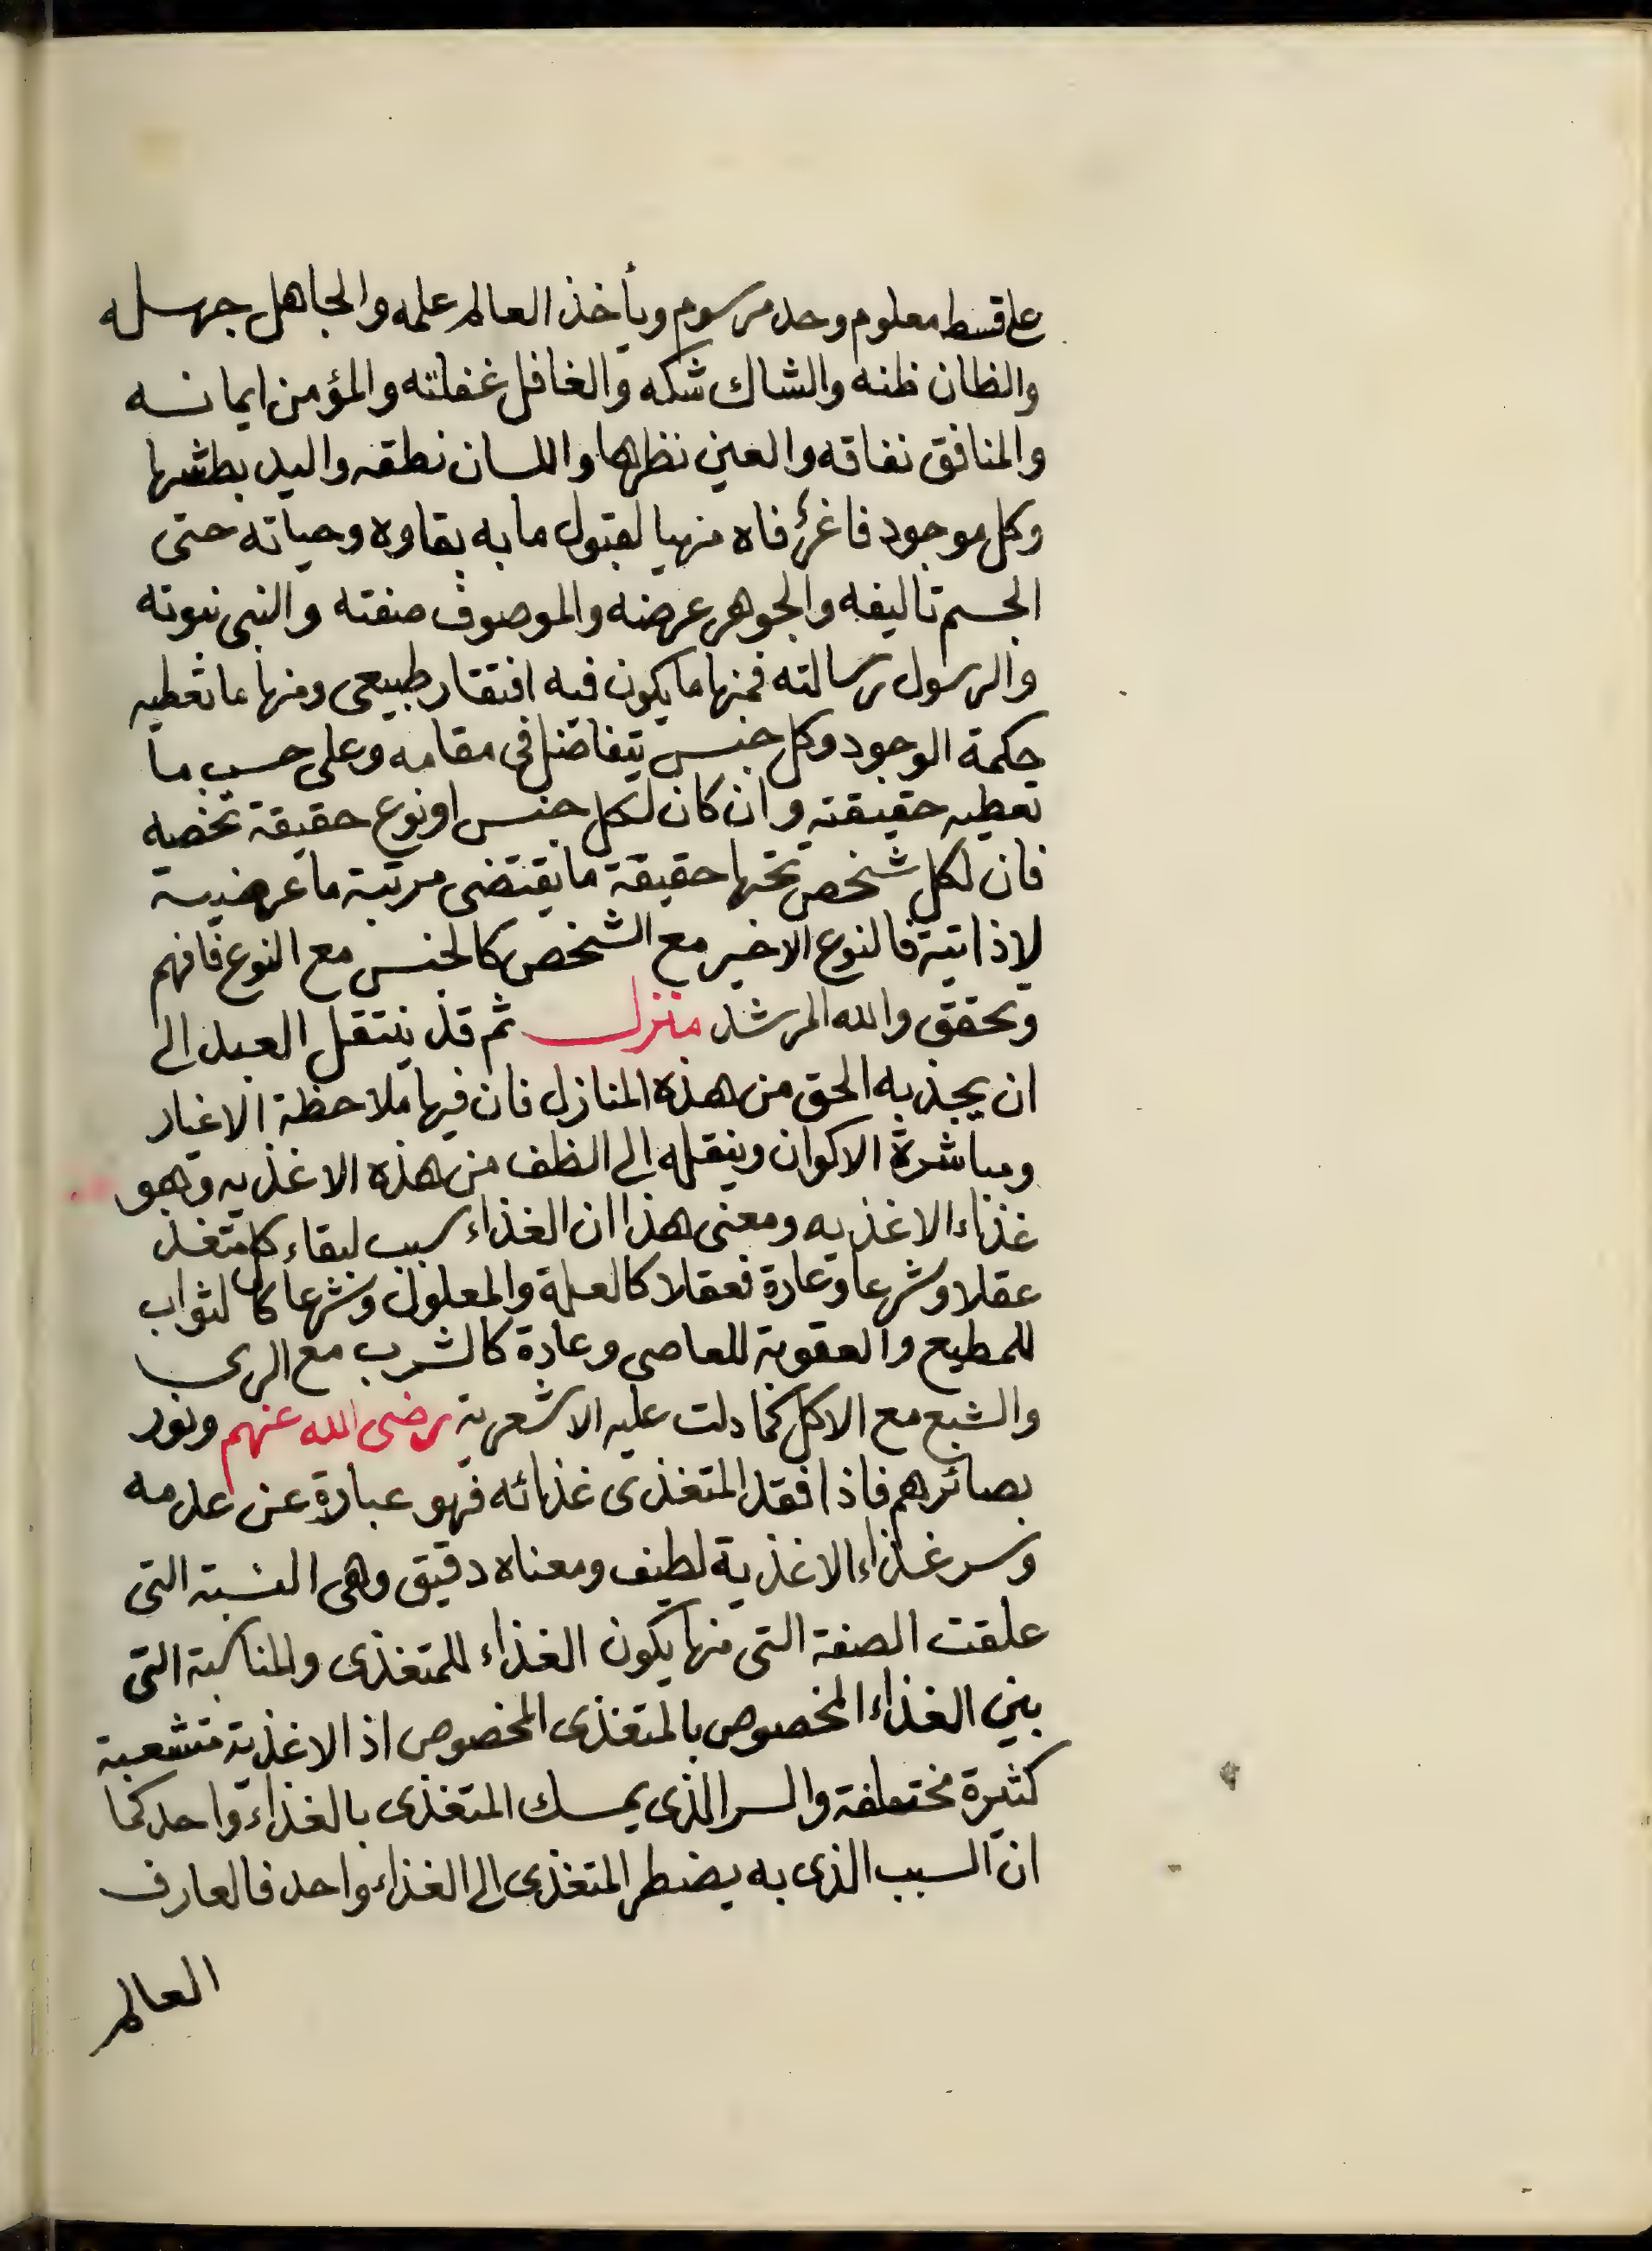 على قسط معلوم وحد مرسوم ويأخذ العالم علمه والجاهل جهله
والظان ظنه والشاك شكه والغافل غفلته والمؤمن ايمانه
والمنافق نفاقه والعين نظرها واللسان نطقه واليد بطشها
وكل موجود فاغر فاه منهيا لقبول ما به بقاوه وحياته حتى
الجسم تاليفه والجوهر عرضه والموصوف صفته والنبى نبوته
والرسول رسالته فمنها ما يكون فيه افتقار طبيعى ومنها ما تعطيه
حكمة الوجود وكل جنس يتفاضل فى مقامه وعلى حسب ما
تعطيه حقيقته وان كان لكل جنس او نوع حقيقة تخصه
فان لكل شخص تحتها حقيقة ما يقتضى مرتبة ما عرضية
لا ذاتية فالنوع الاخير مع الشخص كالجنس مع النوع فافهم
وتحقق والله المرشد منزل ثم قد ينتقل العبد الى
ان يجذبه الحق من هذه المنازل فان فيها ملاحظة الاغيار
ومباشرة الاكوان وينقله الى الطف من هذه الاغذيه وهو
غذاء الاغذيه ومعنى هذا ان الغذاء سبب لبقاء كل متغذ
عقلا وشرعا وعادة فعقلا كالعلة والمعلول وشرعا كالثواب
للمطيع والعقوبة للعاصى وعادة كالشرب مع الرى
والشبع مع الاكل كما دلت عليه الاشعرية رضى الله عنهم ونور
بصائرهم فاذا فقد المتغذى غذائه فهو عبارة عن عدمه
وسر غذاء الاغذية لطيف ومعناه دقيق وهى النسبة التى
علقت الصفة التى منها يكون الغذاء للمتغذى والمناسبة التى
بين الغذاء المخصوص بالمتغذى المخصوص اذ الاغذية متشعبة
كثيرة مختلفة والسر الذى يمسك المتغذى بالغذاء واحد كما
ان السبب الذى به يضطر المتغذى الى الغذاء واحد فالعارف
العالم